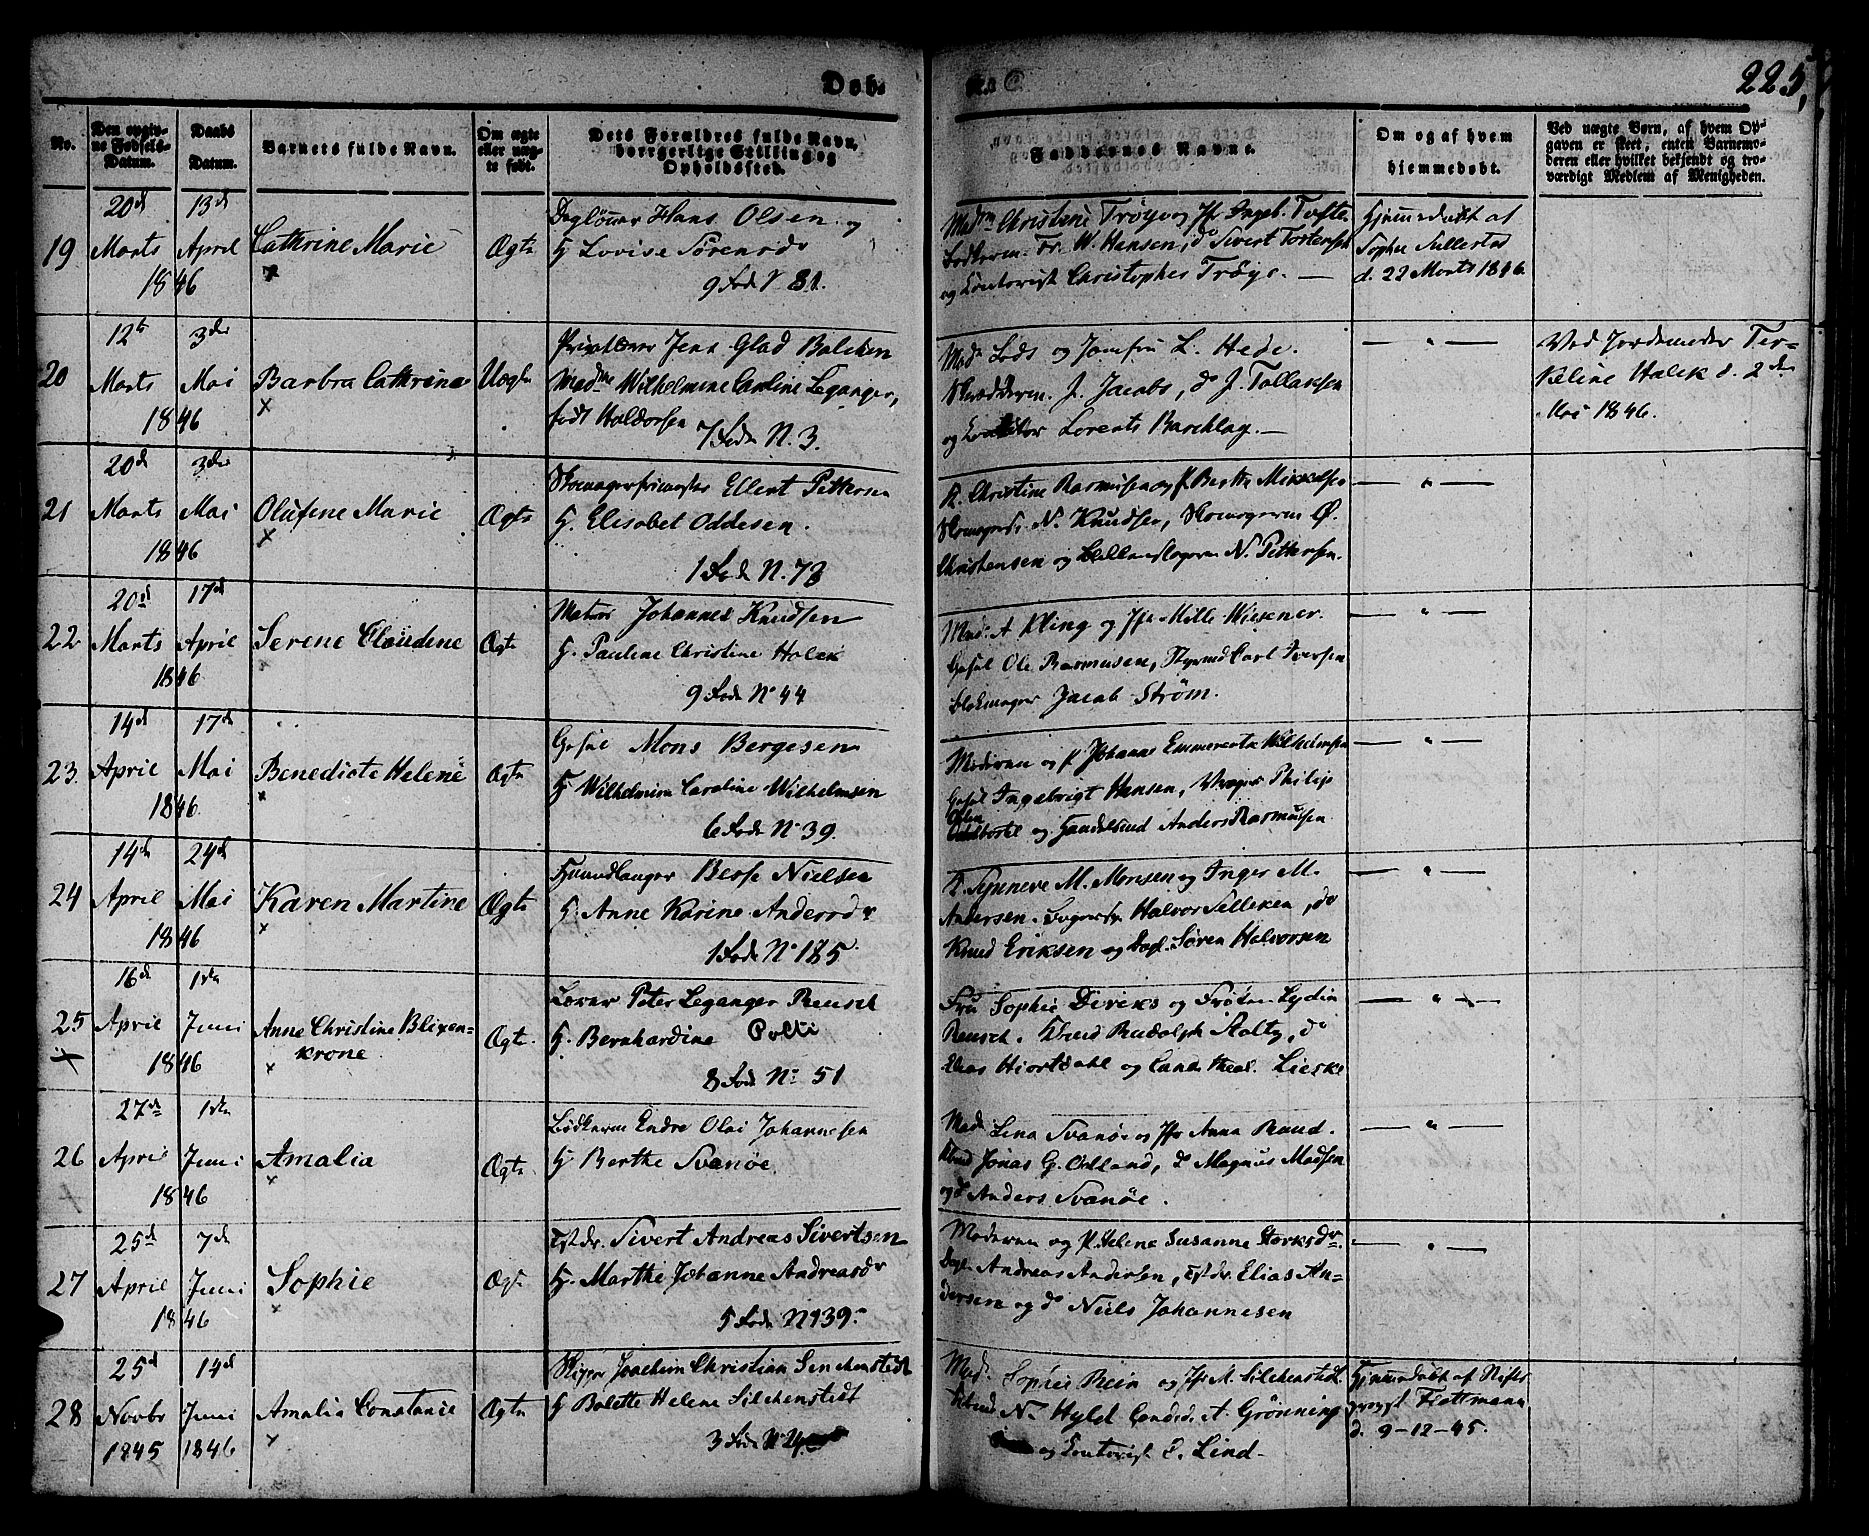 Døb- te C. 225,
No. Den opgiv-
ne Fødsels-
Datum. Daabs
Datum. Barnets fulde Navn. Om ægte
eller uæg-
te født. Dets Forældres fulde Navn,
borgerlige Stilling og
Opholdssted. Faddernes Navne. Om og af hvem
hjemmedøbt. Ved uægte Børn, af hvem Op-
gaven er skeet, enten Barnemo-
deren eller hvilket bekjendt og tro-
værdigt Medlem af Menigheden.
19 20d Marts 1846 13d April 1846 Cathrine Marie Ægte
Hans Olsen og
H. Lovise Sørensdr
9 Rode N 81.
Christine Trøye og Jfr Ingeb.
W. Hansen, do Sivert Tostensen
og Contorist Christopher Trøye.
Hjemmedøbt af
Sophie
d. 22 Marts 1846
20 12te Marts 1846 3die Mai 1846 Barbra Cathrine Uægte
Jens Glad Balchen
Madme Wilhelmine Caroline Leganger,
født Haldorsen
7 Rode N. 3.
Mad. Lods og Jomfru L. Hede.
J. Jacobs, do J. Tollaksen
og Lorents Barchlag.
Ved Jordemoder Ter-
keline Halck d. 2den
Mai 1846.
21 20d Marts 1846 3die Mai 1846 Olufine Marie Ægte
Ellert Pettersen
H. Elisabet Oddesen.
1 Rode N. 78
P. Christine Rasmusen og P. Berthe Mikkelsen
N. Knudsen, Skomagersv. Ø.
Christensen og N. Pettersen.
22 20d Marts 1846 17d April 1846 Serene Claudene Ægte
Matros Johannes Knudsen
H. Pauline Christine Holck
9 Rode No 44
Mad. A Kling og Jfr Mille Wiesener.
Gesel Ole Rasmusen, Styrmd Carl Iversen
Blokmager Jacob Strøm.
23. 14d April 1846 17d Mai 1846 Benedicte Helene Ægte
Gesel Mons Bergesen
H Wilhelmine Caroline Wilhelmsen
6 Rode No 39.
Moderen og P. Johanne Emmerentze Wilhelmsen
Gesel Ingebrigt Hansen, Vrager Philip
og Handelsmd Anders Rasmusen
24 14de April 1846 24d Mai 1846 Karen Martine Ægte
Haandlanger Berse Nielsen
H. Anne Karine Andersdr
1 Rode No 185
P. Synneve M. Monsen og Inger M.
Andersen. Halvor Silleken, do
Knud Eriksen og Dagl. Søren Halvorsen
25 16d April 1846 1ste Juni 1846 Anne Christine Blixen-
krone Ægte
Lærer Peter Leganger Reusch
H. Bernhardine Polti
8 Rode No 51
Fru Sophie Diriks og Frøken Lydia
Reusch. Kbmd Rudolph Stoltz, do
Elias Hiortdahl og Cand. theol. Lieske
26 27de April 1846 1ste Juni 1846 Amalia Ægte
Bødkersv. Endre Olai Johannesen
H Berthe Svanøe.
Mad. Lina Svanøe og Jfr Anna Rund.
Kbmd Jonas G. Odland, do Magnus Madsen
og do Anders Svanøe.
27 25d April 1846 7de Juni 1846 Sophie Ægte
Sivert Andreas Sivertsen
H. Marthe Johanne Andreasdr
5 Rode N 139.
Moderen og P. Helene Susanne Storksdr.
Andreas Andersen, Elias An-
dersen og do Niels Johannesen
28 25d Novbr 1845 14d Juni 1846 Amalia Constance Ægte
Skipper Joachim Christian Silchenstedt
H Bolette Helene Silchenstedt
3 Rode N 24
Mad. Sophie Rein og Jfr A. Silchenstedt.
Kbmd N. Hyld Candid. A. Grønning
og Contorist C. Lind.
Hjemmedøbt af Stifts-
provst Flottmann
d. 9-12-45.